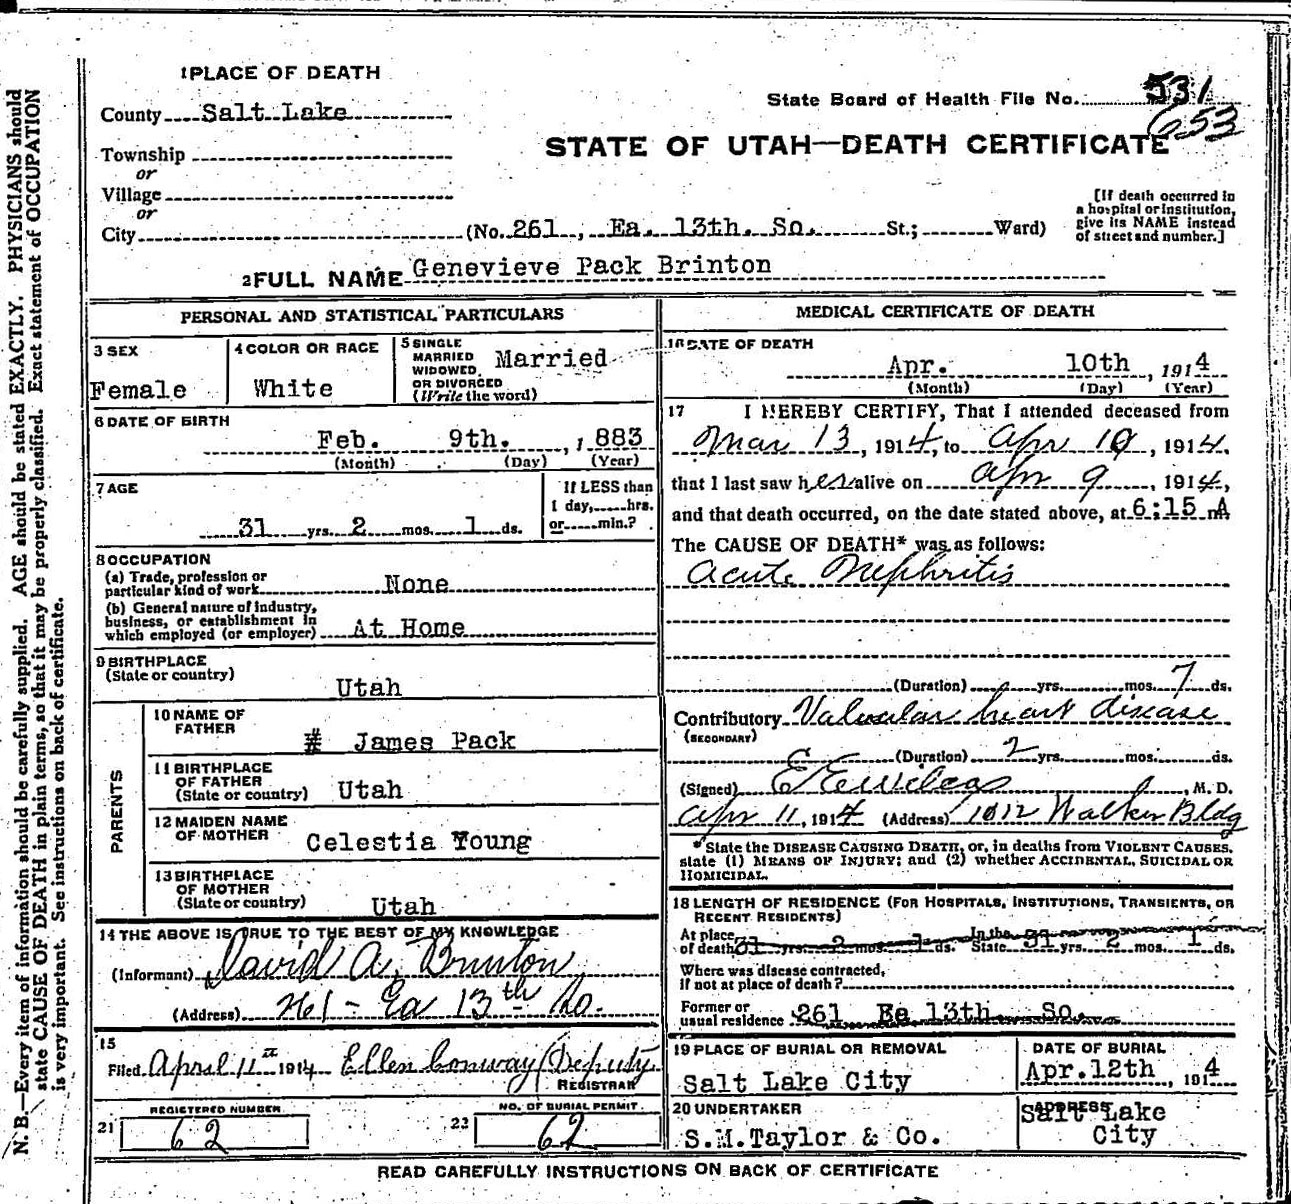 1 PLACE OF DEATH
County Salt Lake
Township
or
Village
or
City (No. 261, Ea. 13th. So. St.; Ward)
State Board of Health File No. 531
653
STATE OF UTAH—DEATH CERTIFICATE
[If death occurred in
a hospital or institution,
give its NAME instead
of street and number.]
2 FULL NAME Genevieve Pack Brinton
PERSONAL AND STATISTICAL PARTICULARS
3 SEX
Female
4 COLOR OR RACE
White
5 SINGLE
MARRIED
WIDOWED
OR DIVORCED
(Write the word)
Married
6 DATE OF BIRTH
Feb. 9th., 1883
(Month) (Day) (Year)
7 AGE
31 yrs. 2 mos. 1 ds.
If LESS than
1 day, hrs.
or min.?
8 OCCUPATION
(a) Trade, profession or
particular kind of work None
(b) General nature of industry,
business, or establishment in
which employed (or employer) At Home
9 BIRTHPLACE
(State or country)
Utah
PARENTS
10 NAME OF
FATHER
# James Pack
11 BIRTHPLACE
OF FATHER
(State or country) Utah
12 MAIDEN NAME
OF MOTHER
Celestia Young
13 BIRTHPLACE
OF MOTHER
(State or country)
Utah
14 THE ABOVE IS TRUE TO THE BEST OF MY KNOWLEDGE
(Informant) David A. Brinton
(Address) 261 - Ea 13th So.
15
Filed April 11th 1914 Ellen Conway (Deputy
REGISTRAR
REGISTERED NUMBER
21 62
NO. OF BURIAL PERMIT
22 62
MEDICAL CERTIFICATE OF DEATH
16 DATE OF DEATH
Apr. 10th, 1914
(Month) (Day) (Year)
17 I HEREBY CERTIFY, That I attended deceased from
Mar 13, 1914, to Apr 10, 1914,
that I last saw her alive on Apr 9, 1914,
and that death occurred, on the date stated above, at 6:15 m A
The CAUSE OF DEATH* was as follows:
Acute Nephritis
(Duration) yrs. mos. 7 ds.
Contributory Valvular heart disease
(SECONDARY)
(Duration) 2 yrs. mos. ds.
(Signed) M. D.
Apr 11, 1914 (Address) 1012 Walker Bldg
*State the DISEASE CAUSING DEATH, or, in deaths from VIOLENT CAUSES,
state (1) MEANS OF INJURY; and (2) whether ACCIDENTAL, SUICIDAL OR
HOMICIDAL.
18 LENGTH OF RESIDENCE (FOR HOSPITALS, INSTITUTIONS, TRANSIENTS, OR
RECENT RESIDENTS)
At place In the
of death 31 yrs. 2 mos. 1 ds. State 31 yrs. 2 mos. 1 ds.
Where was disease contracted,
if not at place of death?
Former or
usual residence 261 Ea 13th. So.
19 PLACE OF BURIAL OR REMOVAL
Salt Lake City
DATE OF BURIAL
Apr. 12th, 1914
20 UNDERTAKER
S.M. Taylor & Co.
ADDRESS
Salt Lake
City
READ CAREFULLY INSTRUCTIONS ON BACK OF CERTIFICATE
N. B.—Every item of information should be carefully supplied. AGE should be stated EXACTLY. PHYSICIANS should
state CAUSE OF DEATH in plain terms, so that it may be properly classified. Exact statement of OCCUPATION
is very important. See instructions on back of certificate.